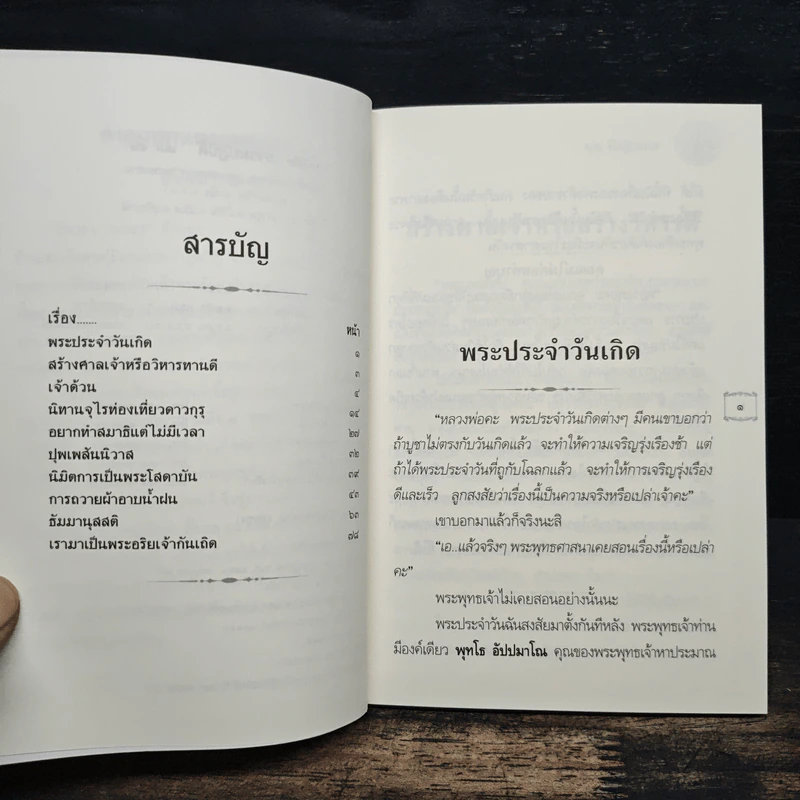 สารบัญ
เรื่อง.......
หน้า
พระประจำวันเกิด ๑
สร้างศาลเจ้าหรือวิหารทานดี ๓
เจ้าด้วน ๔
นิทานจุไรท่องเที่ยวดาวกุรุ ๑๔
อยากทำสมาธิแต่ไม่มีเวลา ๒๗
ปุพเพสันนิวาส ๓๒
นิมิตการเป็นพระโสดาบัน ๓๙
การถวายผ้าอาบน้ำฝน ๔๓
ธัมมานุสสติ ๖๓
เรามาเป็นพระอริยเจ้ากันเถิด ๗๘
พระประจำวันเกิด
๑
“หลวงพ่อคะ พระประจำวันเกิดต่างๆ มีคนเขาบอกว่า
ถ้าบูชาไม่ตรงกับวันเกิดแล้ว จะทำให้ความเจริญรุ่งเรืองช้า แต่
ถ้าได้พระประจำวันที่ถูกับโฉลกแล้ว จะทำให้การเจริญรุ่งเรือง
ดีและเร็ว ลูกสงสัยว่าเรื่องนี้เป็นความจริงหรือเปล่าเจ้าคะ”
เขาบอกมาแล้วก็จริงนะสิ
“เอ..แล้วจริงๆ พระพุทธศาสนาเคยสอนเรื่องนี้หรือเปล่า
คะ”
พระพุทธเจ้าไม่เคยสอนอย่างนั้นนะ
พระประจำวันฉันสงสัยมาตั้งกันทีหลัง พระพุทธเจ้าท่าน
มีองค์เดียว พุทโธ อัปปมาโณ คุณของพระพุทธเจ้าหาประมาณ